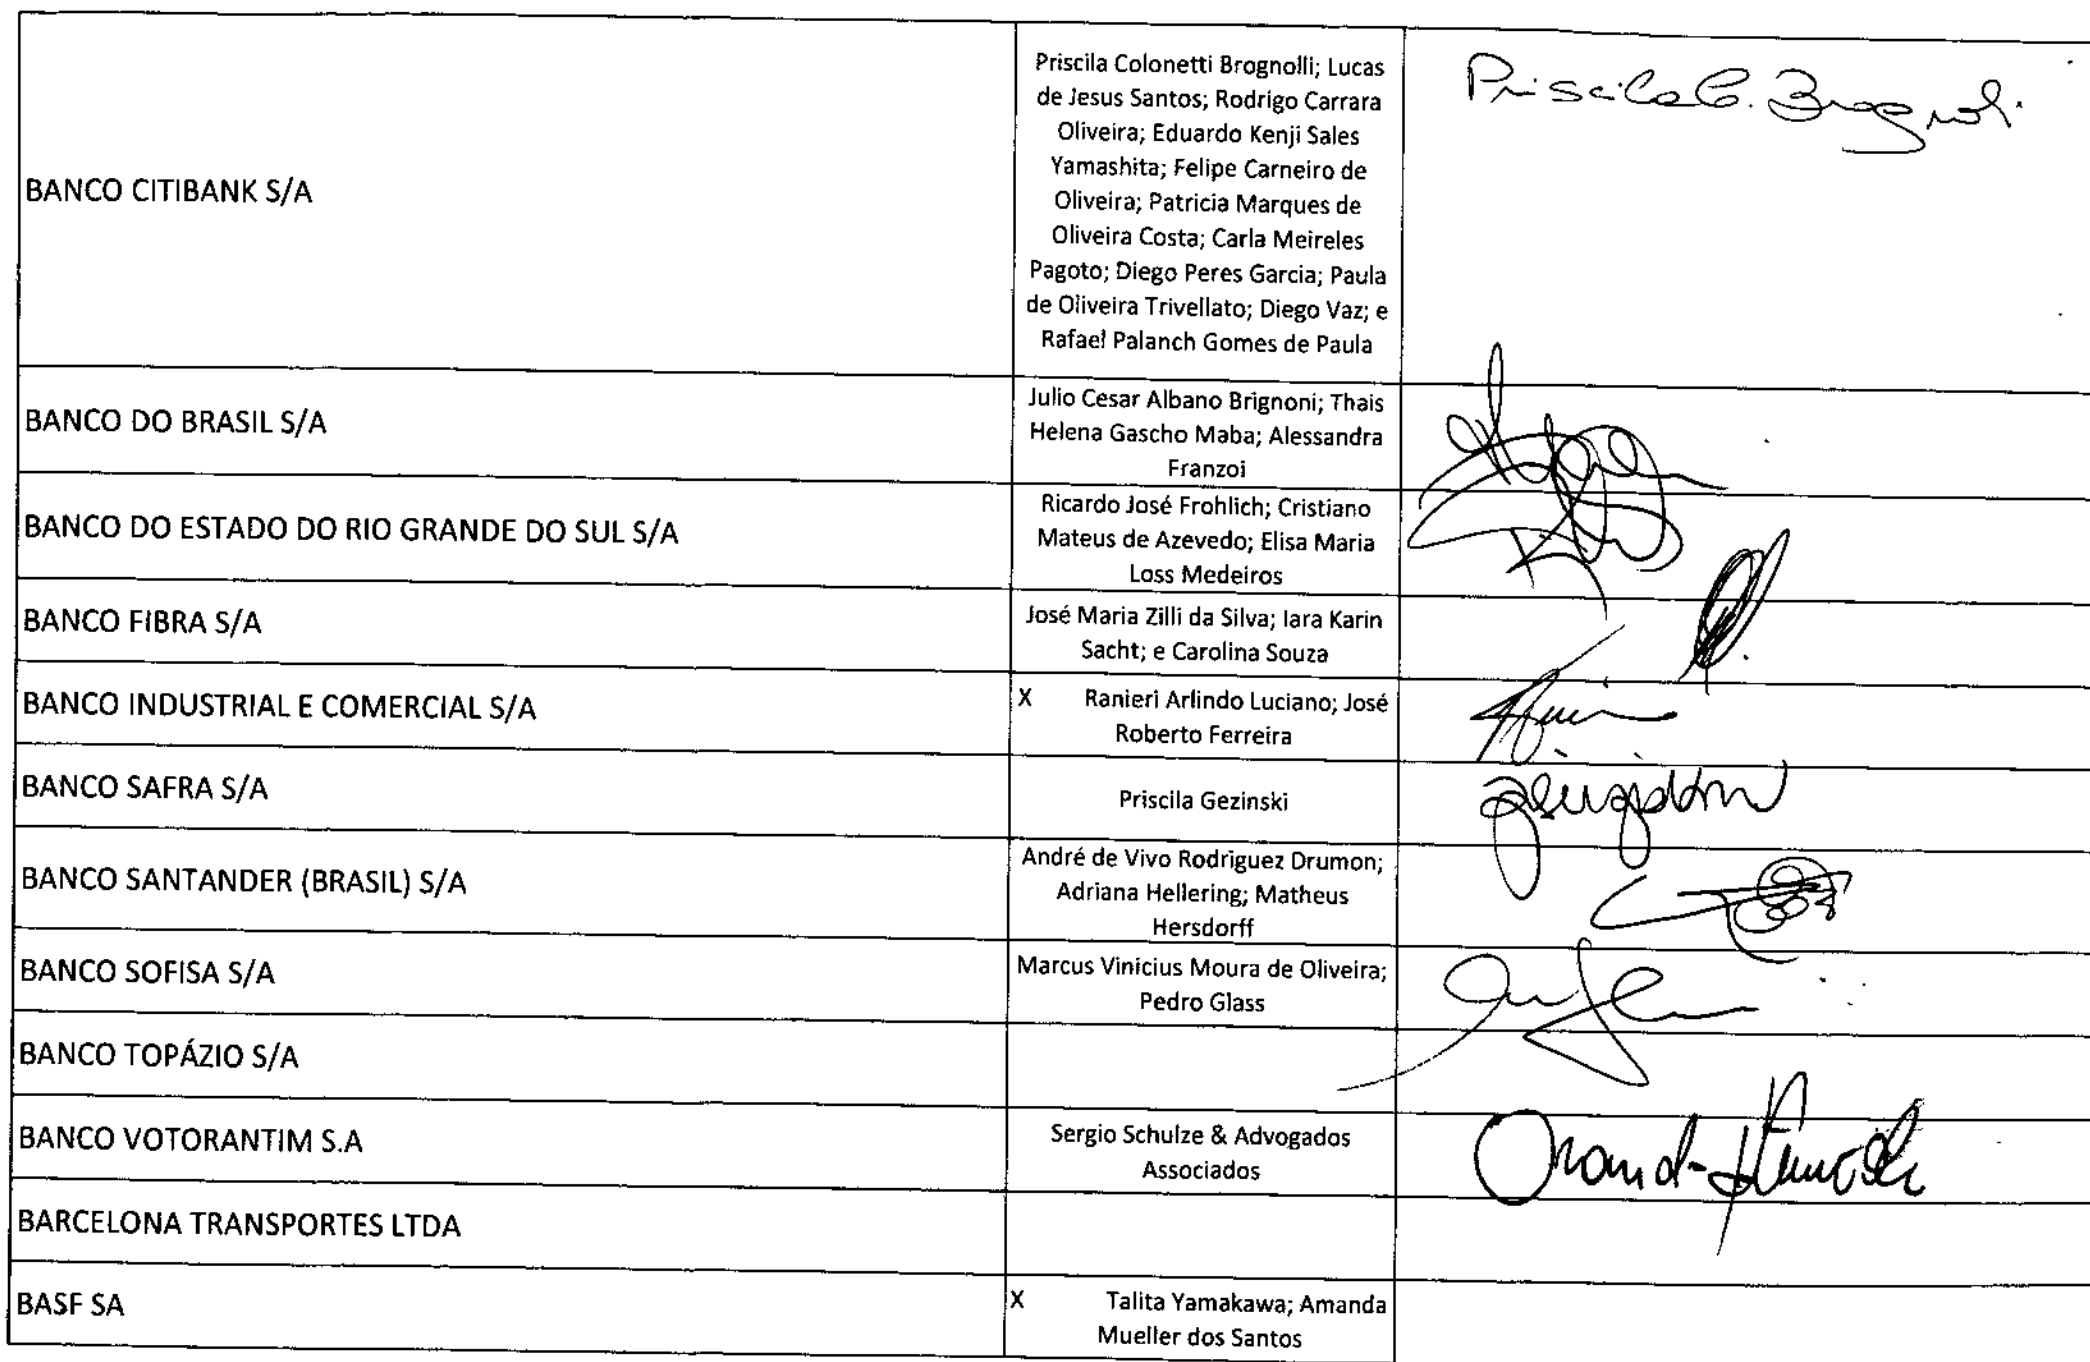 BANCO CITIBANK S/A
Priscila Colonetti Brognolli; Lucas
de Jesus Santos; Rodrigo Carrara
Oliveira; Eduardo Kenji Sales
Yamashita; Felipe Carneiro de
Oliveira; Patricia Marques de
Oliveira Costa; Carla Meireles
Pagoto; Diego Peres Garcia; Paula
de Oliveira Trivellato; Diego Vaz; e
Rafael Palanch Gomes de Paula
Priscila C. Brognoli
BANCO DO BRASIL S/A
Julio Cesar Albano Brignoni; Thais
Helena Gascho Maba; Alessandra
Franzoi
BANCO DO ESTADO DO RIO GRANDE DO SUL S/A
Ricardo José Frohlich; Cristiano
Mateus de Azevedo; Elisa Maria
Loss Medeiros
BANCO FIBRA S/A
José Maria Zilli da Silva; Iara Karin
Sacht; e Carolina Souza
BANCO INDUSTRIAL E COMERCIAL S/A
X Ranieri Arlindo Luciano; José
Roberto Ferreira
BANCO SAFRA S/A
Priscila Gezinski
BANCO SANTANDER (BRASIL) S/A
André de Vivo Rodriguez Drumon;
Adriana Hellering; Matheus
Hersdorff
BANCO SOFISA S/A
Marcus Vinicius Moura de Oliveira;
Pedro Glass
BANCO TOPÁZIO S/A
BANCO VOTORANTIM S.A
Sergio Schulze & Advogados
Associados
BARCELONA TRANSPORTES LTDA
BASF SA
X Talita Yamakawa; Amanda
Mueller dos Santos